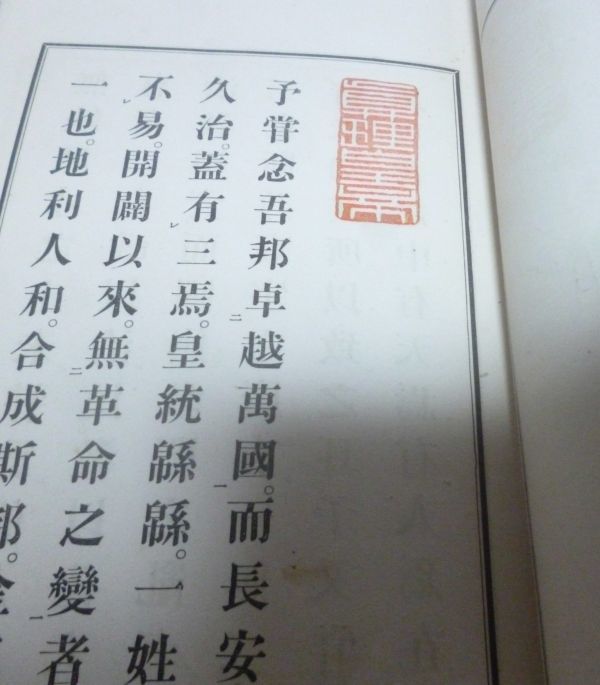 予甞念吾邦卓越二萬國一。而長安
久治。蓋有レ三焉。皇統緜緜。一姓
不レ易。開闢以來。無二革命之變一者
一也。地利人和。合成斯邦。